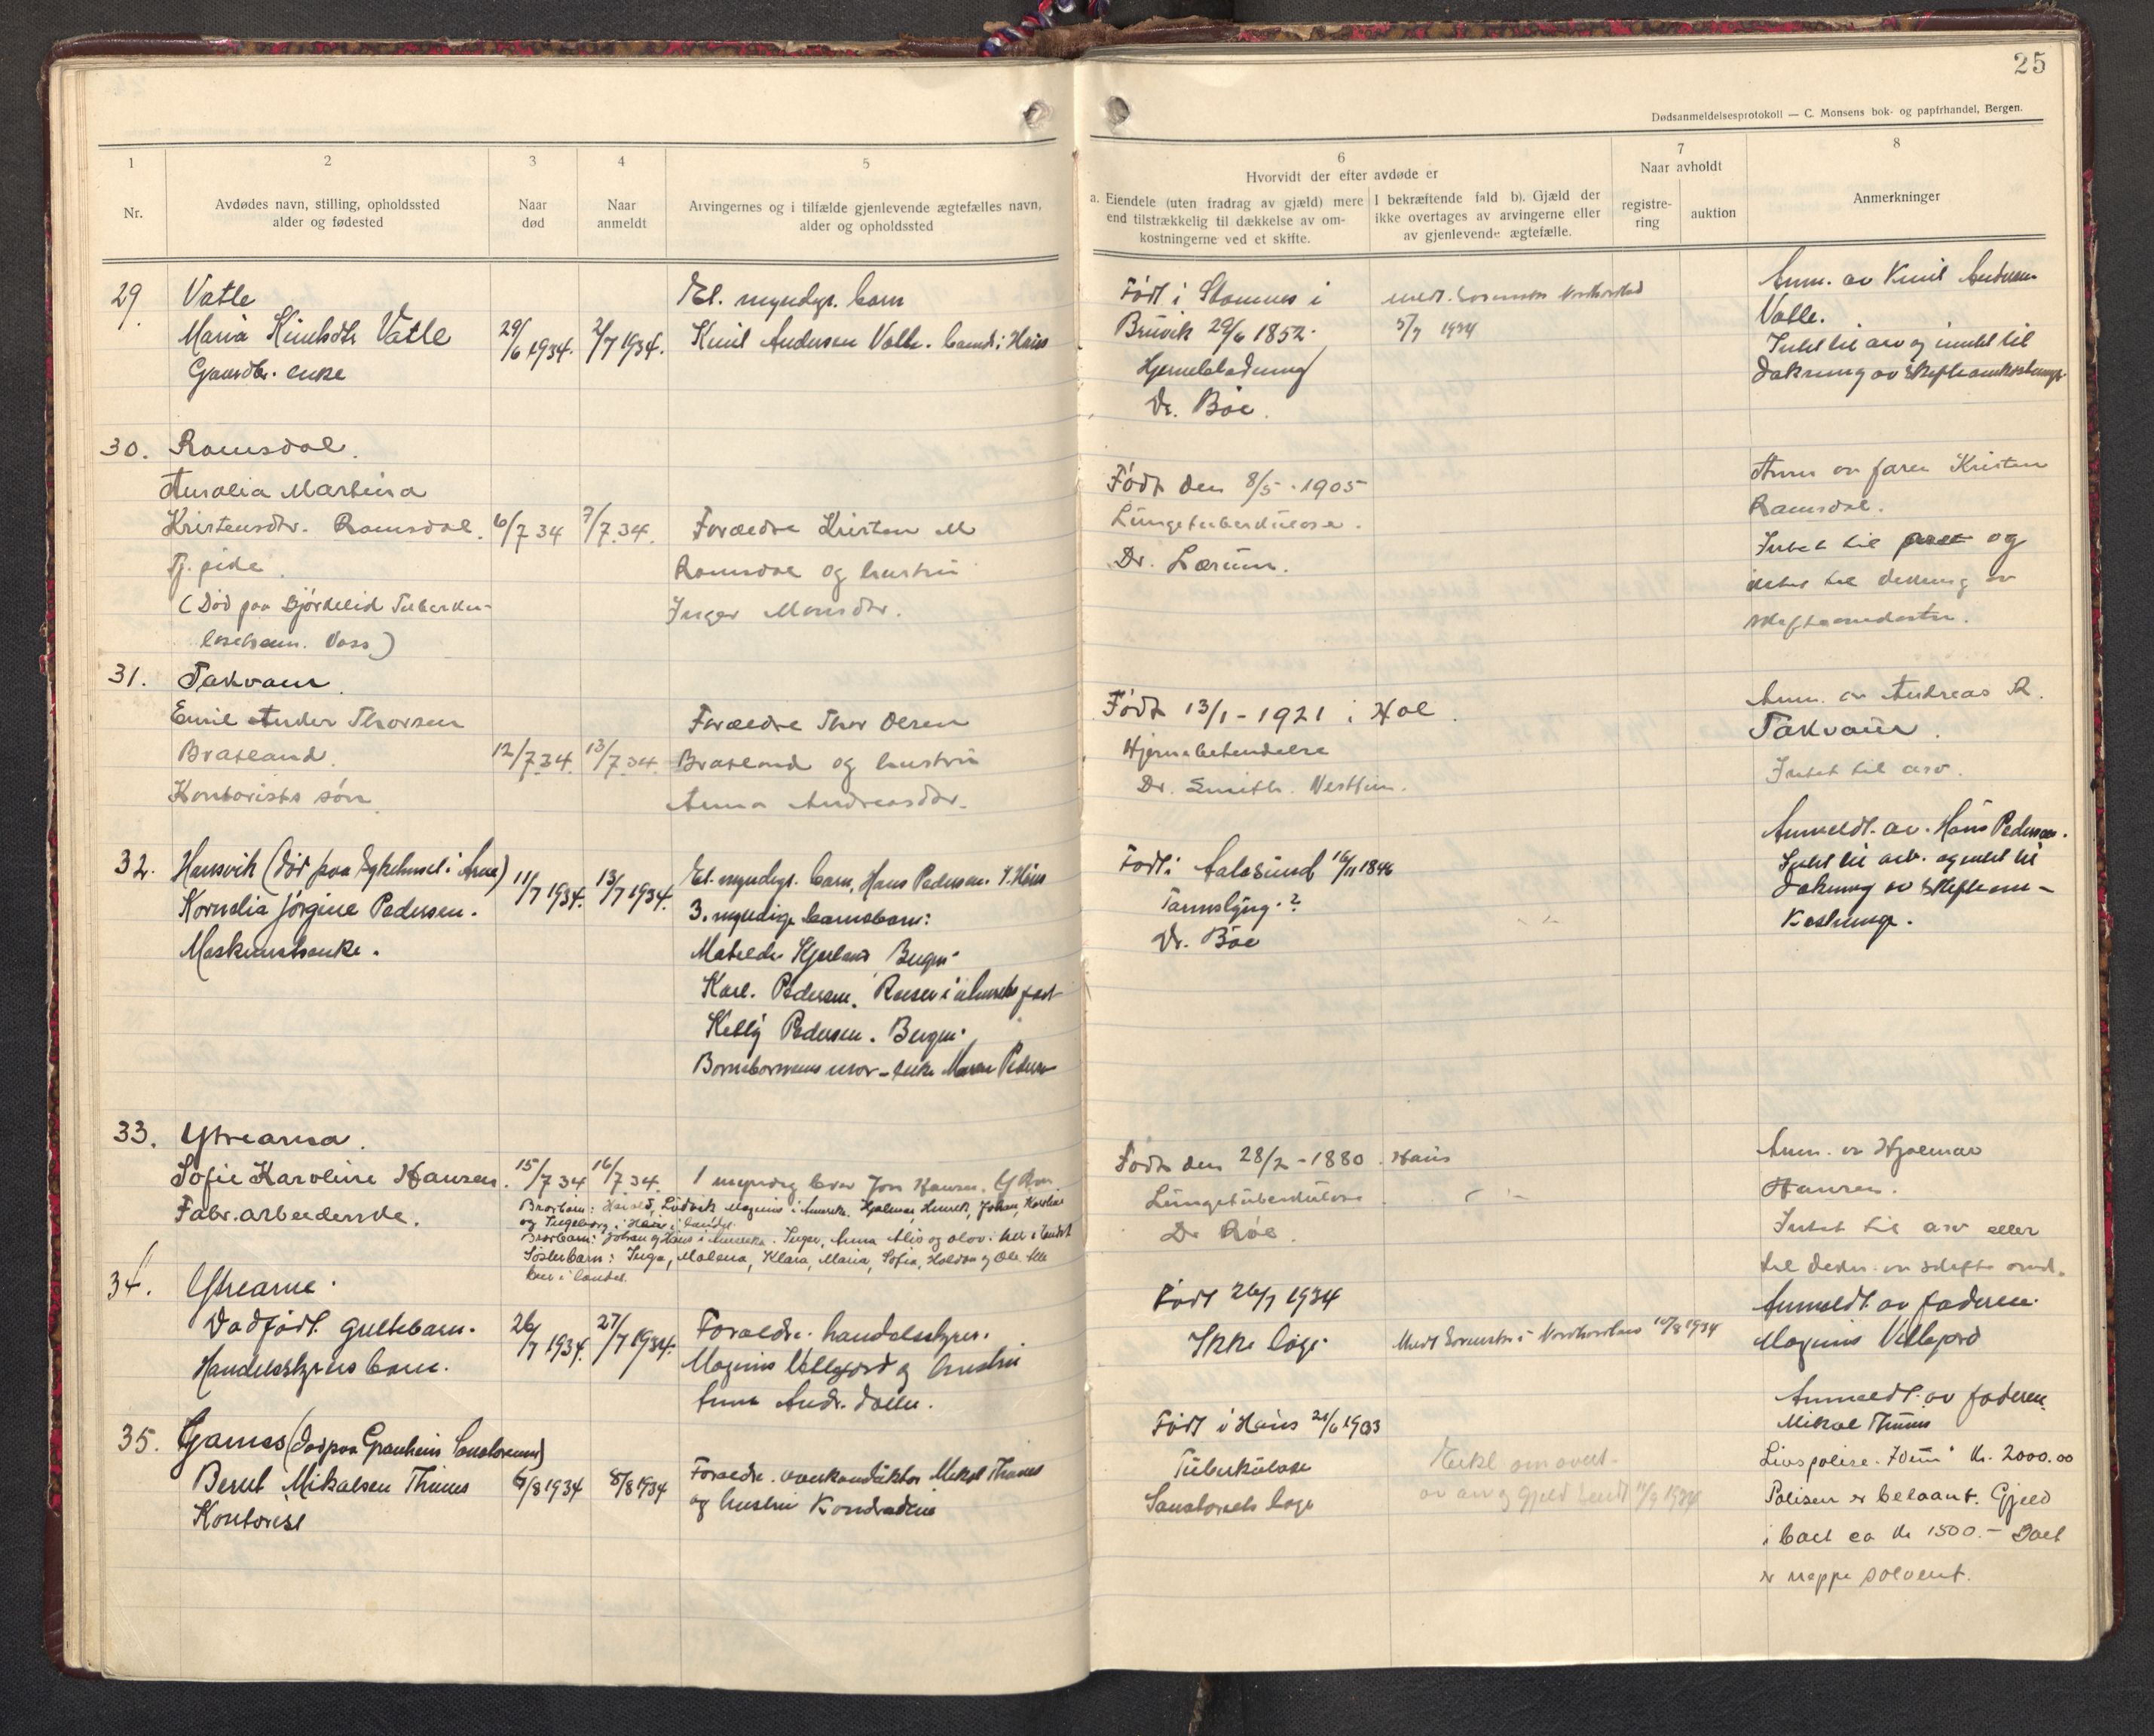 25
Dødsanmeldelsesprotokoll — C. Monsens bok- og papirhandel, Bergen.
1
2
3
4
5
Nr.
Avdødes navn, stilling, opholdssted
alder og fødested
Naar
død
Naar
anmeldt
Arvingernes og i tilfælde gjenlevende ægtefælles navn,
alder og opholdssted
6
Hvorvidt der efter avdøde er
a. Eiendele (uten fradrag av gjæld) mere
end tilstrækkelig til dækkelse av om-
kostningerne ved et skifte.
I bekræftende fald b). Gjæld der
ikke overtages av arvingerne eller
av gjenlevende ægtefælle.
7
Naar avholdt
registre-
ring
auktion
8
Anmerkninger
29. Vatle
Maria Vatle
Gaardbr. enke
29/6 1934.
2/7 1934.
Et. myndigt. barn
Andersen Vatle.
Født i Stamnes i
Bruvik 29/6 1852.
Hjerneblødning
Dr. Böe.
5/7 1934
Anm. av
Vatle.
Intet til arv og intet til
dækning av skifteomkostninger
30. Romsdal.
Amalia Martina
Kristensdtr. Romsdal.
Tj. pike.
(Død paa Tuberku-
losehem. Voss)
6/7 34
7/7.34.
Forældre Kristen M
Romsdal og hustru
Inger Monsdtr.
Født den 8/5 - 1905
Lungetuberkulose.
Dr. Lærum.
Anm av faren Kristen
Romsdal.
Intet til og
intet til dekning av
skifteomkostn.
31. Takvam.
Emil Thorsen
Brateland.
Kontorists søn.
12/7.34.
13/7.34.
Forældre Thor Olsen
Brateland og hustru
Anna Andreasdtr.
Født 13/1 - 1921 i Hol.
Hjernebetendelse
Dr. Smith.
Anm. av Andreas R.
Takvam.
Intet til arv.
32. Hansvik (død paa Sykehuset i Arna)
Kornelia Jørgine Pedersen.
11/7 1934.
13/7 1934.
Et. myndigt. barn, Hans Pedersen.
3. myndige barnebarn:
Matilde Bergen.
Karl. Pedersen.
Pedersen. Bergen.
Født i Aalesund 16/11 1846
Tarmslyng. ?
Dr. Böe
Anmeldt. av. Hans Pedersen.
Intet til arv. og intet til
Dækning av Skifteom-
kostninge.
33. Ytrearna.
Sofie Karoline Hansen.
Fabr. arbeiderske.
15/7 34
16/7 34.
1 myndig bror Jon Hansen.
Brorbarn: Harald, Ludvik Magnus i Amerika. Hjalmar, Henrik, Johan, Karoline
og Ingeborg
Brorbarn: Johan og Hans i Amerika. Inger, Anna og Olav
Søsterbarn: Inga, Malena, Klara, Maria, Sofia, Haldor og Ole
her i landet.
Født den 28/2 - 1880. Haus
Lungetuberkulose
Dr.
Anm. av Hjalmar
Hansen.
Intet til arv eller
til dekn. av skifte omk.
34. Ytrearne.
Dødfødt. guttebarn.
Handelsstyrers barn.
26/7 1934.
27/7 1934.
Foraeldre. handelsstyrer.
Magnus og hustru
Anna Andr.
Født 26/7 1934
Ikke læge.
10/8 1934
Anmeldt av faderen.
Magnus
35. Garnes (død paa Granheim Sanatorium)
Bernt Mikalsen Thunes
Kontorist
6/8 1934
8/8 1934
Foraeldre. Mikal Thunes
og hustru Kondradine
Født i Haus 21/6 1903
Tuberkulose
Sanatoriets læge
11/9 1934
Anmeldt. av faderen
Mikal Thunes
Livspolise. "Idun" kr. 2000.00
Polisen er belaant. Gjeld
i boet ca kr 1500.- Boet
er neppe solvent.